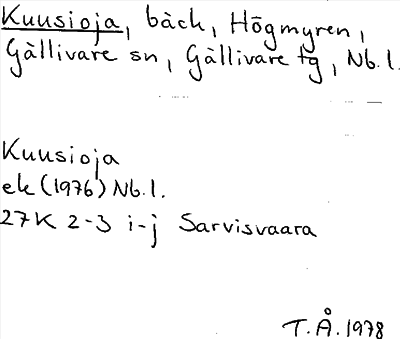 Kuusioja, bäck, Högmyren,
Gällivare sn, Gällivare tg, Nb.l.
Kuusioja
ek (1976) Nb.l.
27K 2-3 i-j Sarvisvaara
T.Å. 1978